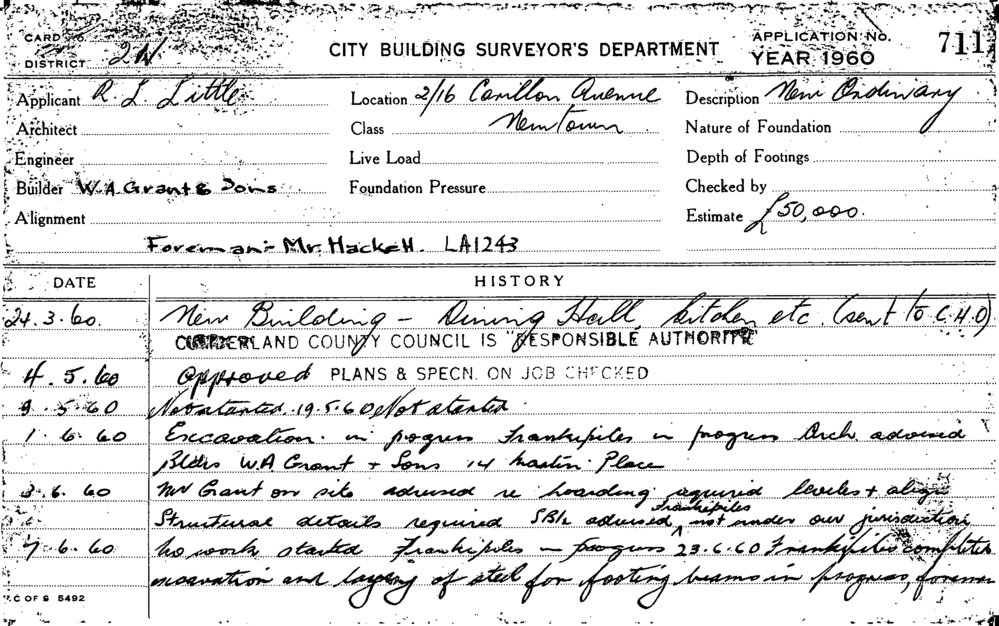 CARD
DISTRICT 2N
CITY BUILDING SURVEYOR'S DEPARTMENT
APPLICATION No. 711
YEAR 1960
Applicant R L Little
Location 2/16 Carillon Avenue
Description New Ordinary
Architect
Class Newtown
Nature of Foundation
Engineer
Live Load
Depth of Footings
Builder W.A Grant & Sons
Foundation Pressure
Checked by
Alignment
Estimate £50,000.
Foreman:- Mr. Hackett. LA1243
DATE HISTORY
24.3.60. New Building – Dining Hall, kitchen etc. (sent to C.H.O)
CUMBERLAND COUNTY COUNCIL IS "RESPONSIBLE AUTHORITY"
4.5.60 Approved PLANS & SPECN. ON JOB CHECKED
9.5.60 Not started. 19.5.60 Not started.
1.6.60 Excavation in progress Frankipiles in progress Arch. advised
Bldrs W.A Grant + Sons 14 Martin Place
3.6.60 Mr Grant on site advised re hoarding required levels + align
Structural details required SB/s advised, Frankipiles not under our jurisdiction
7.6.60 No work started Frankipiles in progress 23.6.60 Frankipiles completed
excavation and laying of steel for footing beams in progress, foreman
C OF S 5492